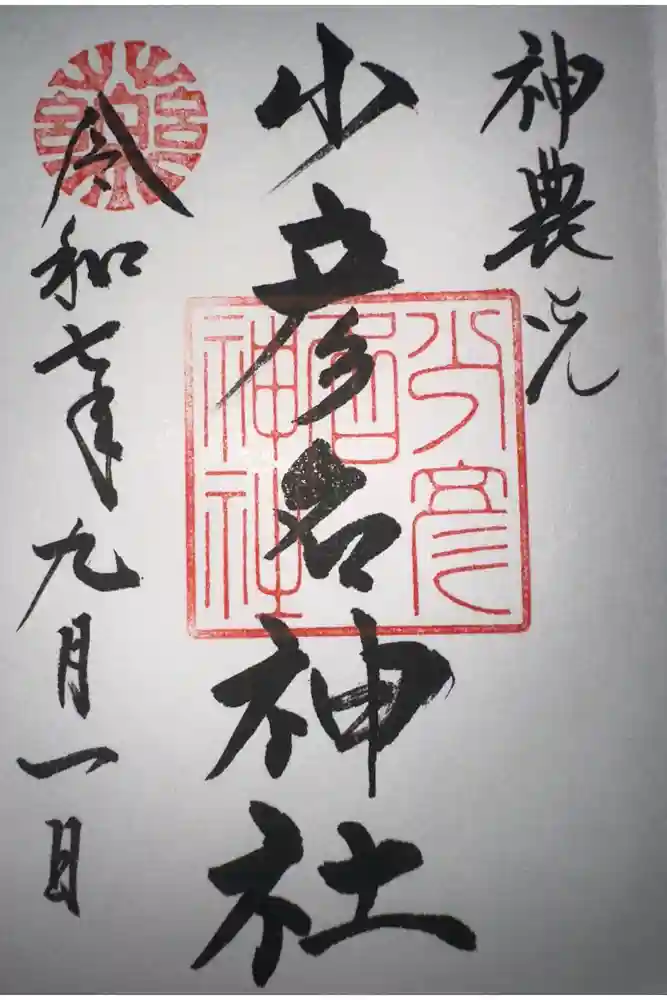 神農
少彦名神社
令和七年九月一日
少彦
名
神社